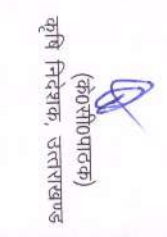 (के०सी०पाठक)
कृषि निदेशक, उत्तराखण्ड